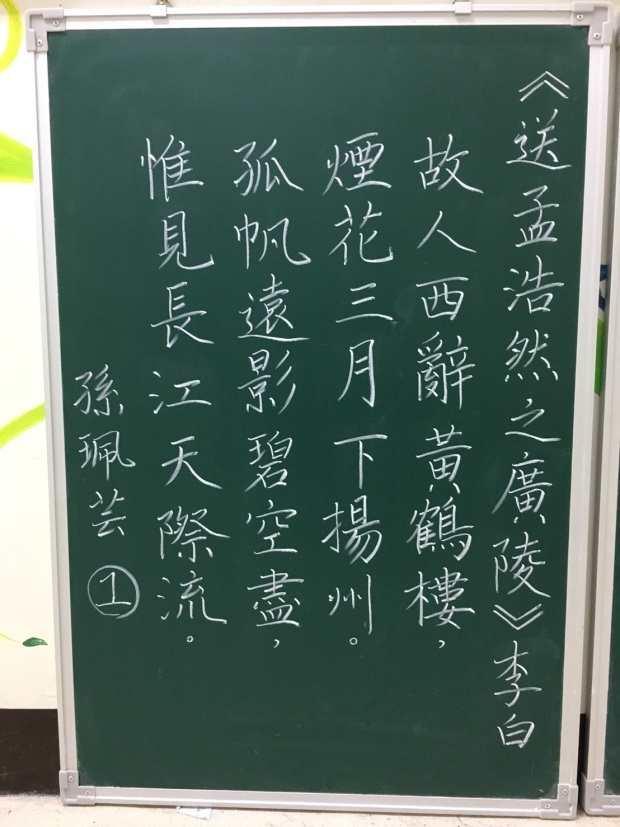 《送孟浩然之廣陵》李白
故人西辭黃鶴樓，
煙花三月下揚州。
孤帆遠影碧空盡，
惟見長江天際流。
孫珮芸①